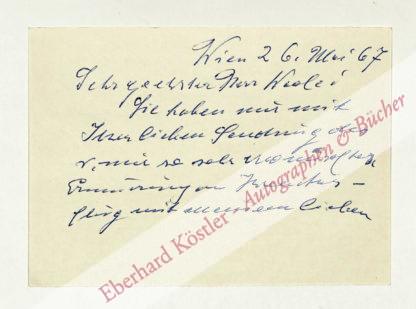 Wien 26. Mai 67
Sehr geehrter Herr
Sie haben mir mit
Ihrer lieben Sendung des
v. mir so sehr
Erinnerung an
flug mit meinem lieben
Eberhard Köstler - Autographen & Bücher